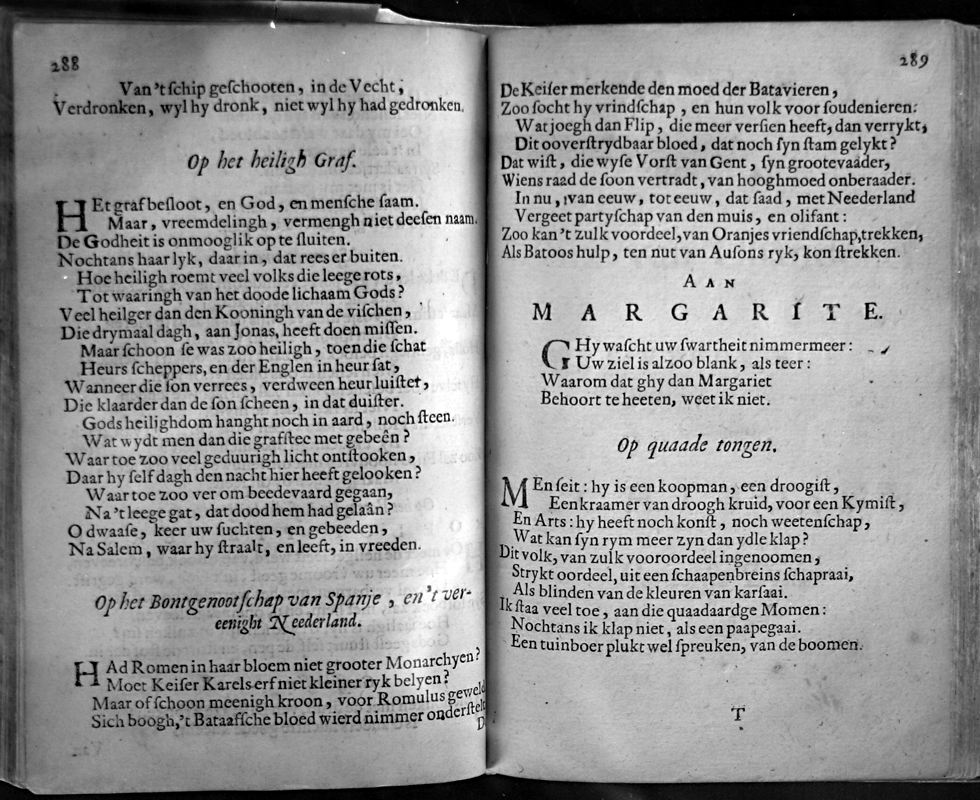 288
Van 't ſchip geſchooten, in de Vecht,
Verdronken, wyl hy dronk, niet wyl hy had gedronken.
Op het heiligh Graf.
HEt graf beſloot, en God, en menſche ſaam.
Maar, vreemdelingh, vermengh niet deeſen naam.
De Godheit is onmooglik op te ſluiten.
Nochtans haar lyk, daar in, dat rees er buiten.
Hoe heiligh roemt veel volks die leege rots,
Tot waaringh van het doode lichaam Gods?
Veel heilger dan den Kooningh van de viſchen,
Die drymaal dagh, aan Jonas, heeft doen miſſen.
Maar ſchoon ſe was zoo heiligh, toen die ſchat
Heurs ſcheppers, en der Englen in heur ſat,
Wanneer die ſon verrees, verdween heur luiſter,
Die klaarder dan de ſon ſcheen, in dat duiſter.
Gods heilighdom hanght noch in aard, noch ſteen.
Wat wydt men dan die grafſtee met gebeên?
Waar toe zoo veel geduurigh licht ontſtooken,
Daar hy ſelf dagh den nacht hier heeft gelooken?
Waar toe zoo ver om beedevaard gegaan,
Na 't leege gat, dat dood hem had gelaân?
O dwaaſe, keer uw ſuchten, en gebeeden,
Na Salem, waar hy ſtraalt, en leeft, in vreeden.
Op het Bontgenootſchap van Spanje, en 't ver-
eenight Neederland.
HAd Romen in haar bloem niet grooter Monarchyen?
Moet Keiſer Karels erf niet kleiner ryk belyen?
Maar of ſchoon meenigh kroon, voor Romulus geweld
Sich boogh, 't Bataafſche bloed wierd nimmer onderſtelt.
D
289
De Keiſer merkende den moed der Batavieren,
Zoo ſocht hy vrindſchap, en hun volk voor ſoudenieren:
Wat joegh dan Flip, die meer verſien heeft, dan verrykt,
Dit ooverſtrydbaar bloed, dat noch ſyn ſtam gelykt?
Dat wiſt, die wyſe Vorſt van Gent, ſyn grootevaader,
Wiens raad de ſoon vertradt, van hooghmoed onberaader.
In nu, van eeuw, tot eeuw, dat ſaad, met Neederland
Vergeet partyſchap van den muis, en olifant:
Zoo kan 't zulk voordeel, van Oranjes vriendſchap, trekken,
Als Batoos hulp, ten nut van Auſons ryk, kon ſtrekken.
AAN
MARGARITE.
GHy waſcht uw ſwartheit nimmermeer:
Uw ziel is alzoo blank, als teer:
Waarom dat ghy dan Margariet
Behoort te heeten, weet ik niet.
Op quaade tongen.
MEn ſeit: hy is een koopman, een droogiſt,
Een kraamer van droogh kruid, voor een Kymiſt,
En Arts: hy heeft noch konſt, noch weetenſchap,
Wat kan ſyn rym meer zyn dan ydle klap?
Dit volk, van zulk vooroordeel ingenoomen,
Strykt oordeel, uit een ſchaapenbreins ſchapraai,
Als blinden van de kleuren van karſaai.
Ik ſtaa veel toe, aan die quaadaardge Momen:
Nochtans ik klap niet, als een paapegaai.
Een tuinboer plukt wel ſpreuken, van de boomen.
T